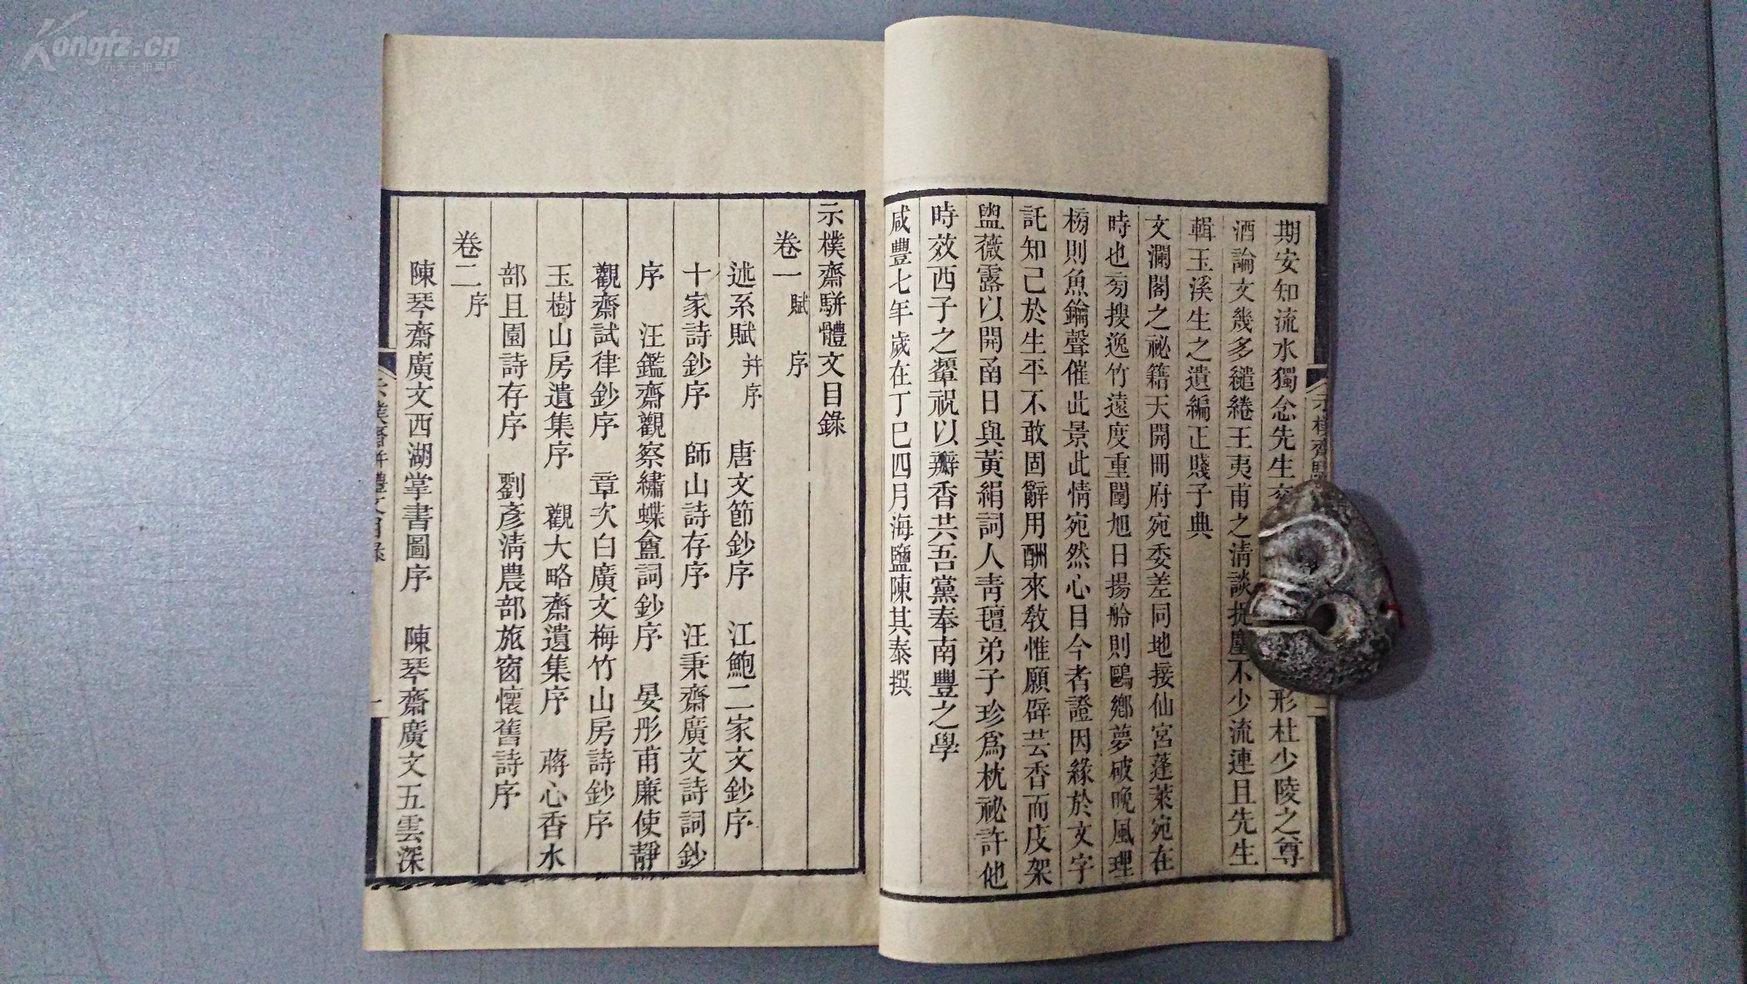 期安知流水獨念先生形杜少陵之尊
酒論文幾多繾綣王夷甫之淸談捉麈不少流連且先生
輯玉溪生之遺編正賤子典
文瀾閣之祕籍天開冊府宛委差同地接仙宮蓬萊宛在
時也旁搜逸竹遠度重闈旭日揚舲則鷗鄉夢破晚風理
榜則魚鑰聲催此景此情宛然心目今者證因緣於文字
託知己於生平不敢固辭用酬來教惟願辟芸香而庋架
盥薇露以開函日與黃絹詞人靑氊弟子珍爲枕祕許他
時效西子之顰祝以瓣香共吾黨奉南豐之學
咸豐七年歲在丁巳四月海鹽陳其泰撰
示樸齋駢體文目錄
卷一 賦 序
述系賦 幷序 唐文節鈔序 江鮑二家文鈔序
十家詩鈔序 師山詩存序 汪秉齋廣文詩詞鈔
序 汪鑑齋觀察繡蝶盦詞鈔序 晏彤甫廉使靜
觀齋試律鈔序 章次白廣文梅竹山房詩鈔序
玉樹山房遺集序 觀大略齋遺集序 蔣心香水
部且園詩存序 劉彥淸農部旅窗懷舊詩序
卷二 序
陳琴齋廣文西湖掌書圖序 陳琴齋廣文五雲深
示樸齋駢體文目錄
一
Kongfz.cn